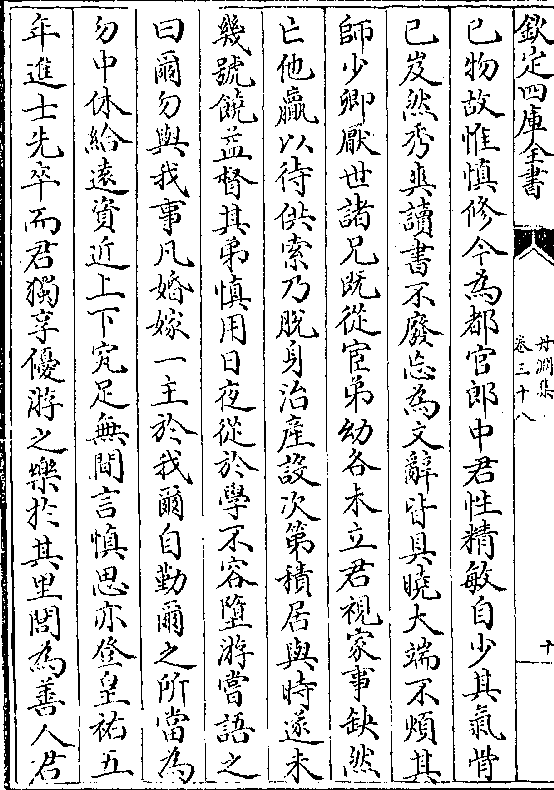 欽定四庫全書
丹淵集
卷三十八
十
已物故惟慎修今為都官郎中君性精敏自少其氣骨
已岌然秀爽讀書不廢忘為文辭皆具曉大端不煩其
師少卿厭世諸兄既從宦弟幼各未立君視家事缺然
亡他贏以待供索乃脫身治產設次第積居與時逐未
幾號饒益督其弟慎用日夜從於學不容墮游嘗語之
曰爾勿與我事凡婚嫁一主於我爾自勤爾之所當為
勿中休給遠資近上下究足無間言慎思亦登皇祐五
年進士先卒而君獨享優游之樂於其里閭為善人君